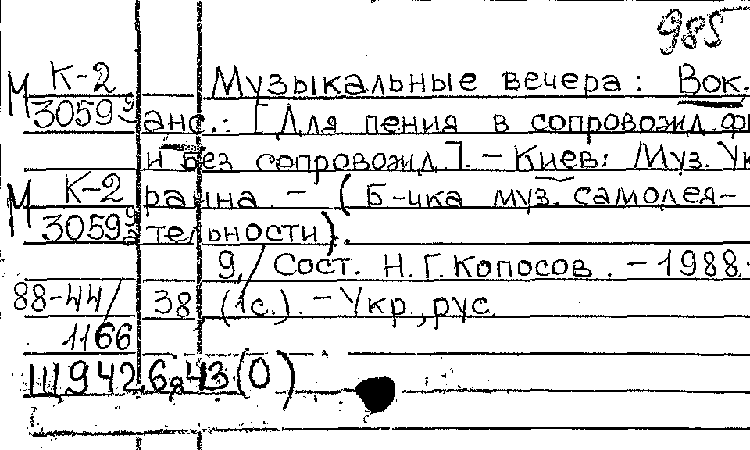 985
М К-2 Музыкальные вечера: Вок.
3059 анс.: [Для пения в сопровожд. ф
и без сопровожд.]. – Киев: Муз. Ук
М К-2 раина. – (Б-чка муз. самодея-
3059 тельности).
9/ Сост. Н.Г. Копосов. – 1988.
88-44/ 38 (1с.). – Укр., рус.
1166
Щ942.6я43(0)